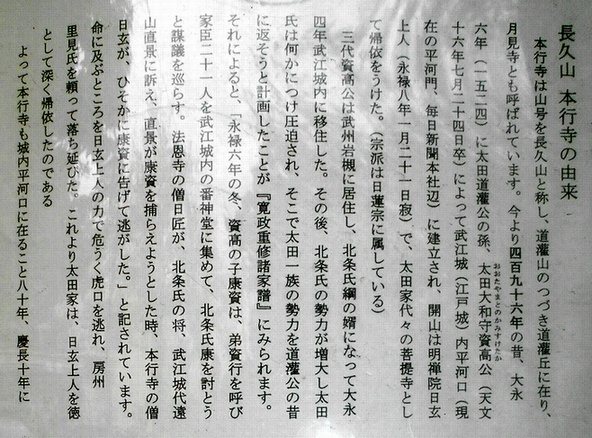 長久山 本行寺の由来
本行寺は山号を長久山と称し、道灌山のつづき道灌丘に在り、
月見寺とも呼ばれています。今より四百九十六年の昔、大永
六年（一五二四）に太田道灌公の孫、太田大和守資高公（天文
おおたやまとのかみすけたか
十六年七月二十四日卒）によって武江城（江戸城）内平河口（現
在の平河門、毎日新聞本社辺）に建立され、開山は明禅院日玄
上人（永禄八年一月二十一日寂）で、太田家代々の菩提寺とし
て帰依をうけた。（宗派は日蓮宗に属している）
三代資高公は武州岩槻に居住し、北条氏綱の婿になって大永
四年武江城内に移住した。その後、北条氏の勢力が増大し太田
氏は何かにつけ圧迫され、そこで太田一族の勢力を道灌公の昔
に返そうと計画したことが『寛政重修諸家譜』にみられます。
それによると、「永禄六年の冬、資高の子康資は、弟資行を呼び
家臣二十一人を武江城内の番神堂に集めて、北条氏康を討とう
と謀議を巡らす。法恩寺の僧日匠が、北条氏の将、武江城代遠
山直景に訴え、直景が康資を捕らえようとした時、本行寺の僧
日玄が、ひそかに康資に告げて逃がした。」と記されています。
命に及ぶところを日玄上人の力で危うく虎口を逃れ、房州
里見氏を頼って落ち延びた。これより太田家は、日玄上人を徳
として深く帰依したのである
よって本行寺も城内平河口に在ること八十年、慶長十年に